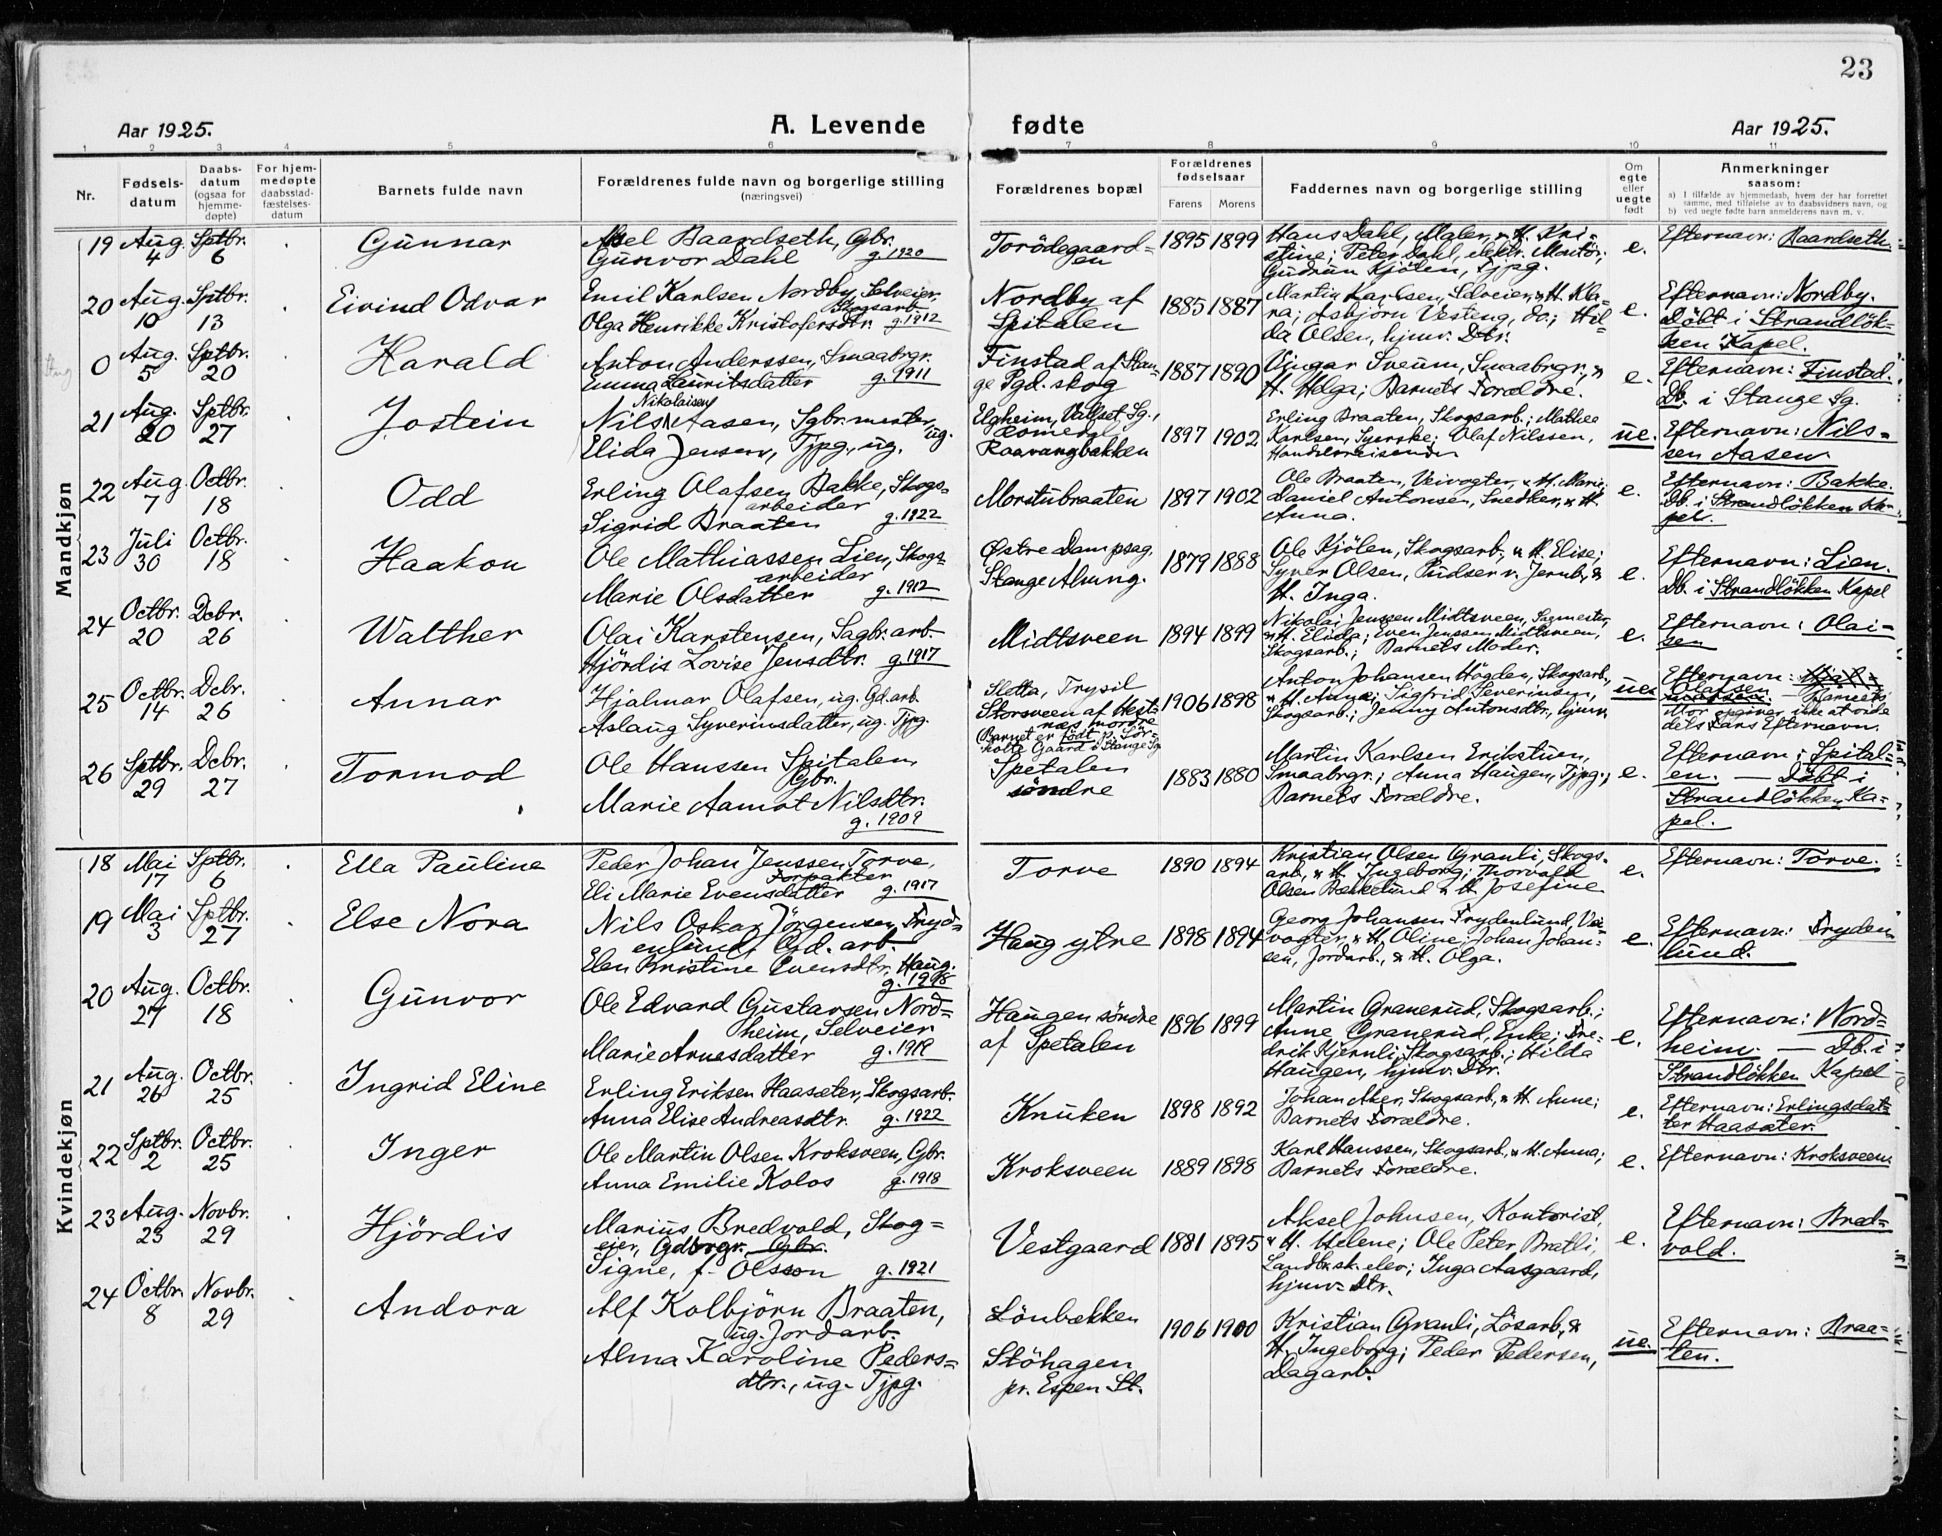 23
Aar 1925.
A. Levende fødte
Aar 1925.
1 2 3 4 5 6 7 8 9 10 11
Nr.
Fødsels-
datum
Daabs-
datum
(ogsaa for
hjemme-
døpte)
For hjem-
medøpte
daabsstad-
fæstelses-
datum
Barnets fulde navn
Forældrenes fulde navn og borgerlige stilling
(næringsvei)
Forældrenes bopæl
Forældrenes
fødselsaar
Farens Morens
Faddernes navn og borgerlige stilling
Om
egte
eller
uegte
født
Anmerkninger
saasom:
a) I tilfælde av hjemmedaab, hvem der har forrettet
samme, med tilføielse av to daabsvidners navn, og
b) ved uegte fødte barn anmelderens navn m. v.
Mandkjøn
19 Aug. 4 Sptbr. 6
Gunnar
Axel Baardseth, Gbr.
Gunvor Dahl g. 1920
Torödegaard=
en
1895 1899
Hans Dahl, Maler, & H. Kri-
stine; Peter Dahl, elektr. Montör;
Gudrun Kjölen, Tjpg.
e.
Efternavn: Baardseth.
20 Aug. 10 Sptbr. 13
Eivind Odvar
Emil Karlsen Nordby, Selveier,
Skogsarb.
Olga Henrikke Kristofersdtr. g. 1912
Nordby af
Spitalen
1885 1887
Martin Karlsen, Selveier, & H. Kla-
ra; Asbjörn Vesteng, do.; Hil-
da Olsen, hjmv. Dtr.
e.
Efternavn: Nordby.
Döbt i Strandlök-
ken Kapel.
0 Aug. 5 Sptbr. 20
Harald
Anton Anderssen, Smaabrgr.
Emma Lauritsdatter g. 1911
Finstad af Stan-
ge Pgd. skog
1887 1890
Ingar Sveum, Smaabrgr., &
H. Helga; Barnets Forældre.
e.
Efternavn: Finstad.
Db. i Stange Sg.
21 Aug. 20 Sptbr. 27
Jostein
Nikolaisen
Nils Aasen, Sgbr.mester, ug.
Elida Jensen, Tjpg., ug.
Elgheim, Vallset Sg.,
Romerge
Raavangbakken
1897 1902
Erling Braaten, Skogsarb.; Mathee
Karlsen, Syerske; Olaf Nilssen,
Handelsreisende
ue.
Efternavn: Nils-
sen Aasen
22 Aug. 7 Octbr. 18
Odd
Erling Olafsen Bakke, Skogs-
arbeider
Sigrid Braaten g. 1922
Moritubraaten
1897 1902
Ole Braaten, Veivogter, & H. Marie;
Daniel Antonsen, Snedker, & H.
Anna.
e.
Efternavn: Bakke.
Db. i Strandlökken Ka-
pel.
23 Juli 30 Octbr. 18
Haakon
Ole Mathiassen Lien, Skogs-
arbeider
Marie Olsdatter g. 1912
Östre Dampsag.
Stange Almng.
1879 1888
Ole Kjölen, Skogsarb., & H. Elise;
Syver Olsen, Pudser v. Jernb., &
H. Inga.
e.
Efternavn: Lien.
Db. i Strandlökken Kapel
24 Octbr. 20 Dcbr. 26
Walther
Olai Karstensen, Sagbr.arb.
Hjördis Lovise Jensdtr. g. 1917
Midtsveen
1894 1899
Nikolai Jenssen Midtsveen, Sagmester,
& H. Elida; Even Jenssen Midtsveen,
Skogsarb.; Barnets Moder.
e.
Efternavn: Olai-
sen
25 Octbr. 14 Dcbr. 26
Annar
Hjalmar Olafsen, ug. Gd.arb.
Aslaug Syverinsdatter, ug. Tjpg.
Sletta, Trysil
Storsveen af Hest-
næs nordre
Barnet er født p. Sör-
holte Gaard i Stange Sg
1906 1898
Anton Johansen Högden, Skogsarb.,
& H. Anna; Sigfrid Severinsen,
Skogsarb.; Jenny Antonsdtr., hjmv.
ue.
Efternavn:
Olafsen — Barnets
Mor opgiver ikke at vide
dets Fars Efternavn.
26 Sptbr. 29 Dcbr. 27
Tormod
Ole Hanssen Spitalen,
Gbr.
Marie Aamot Nilsdtr.
g. 1909
Spetalen
söndre
1883 1880
Martin Karlsen Erikstuen,
Smaabrgr.; Anna Haugen, Tjpg.;
Barnets Forældre.
e.
Efternavn: Spital-
en. — Döbt i
Strandlökken Ka-
pel.
Kvindekjøn
18 Mai 17 Sptbr. 6
Ella Pauline
Peder Johan Jenssen Torve,
Forpakter
Eli Marie Evensdatter g. 1917
Torve
1890 1894
Kristian Olsen Granli, Skogs-
arb., & H. Ingeborg; Thorvald
Olsen Bækkelund & H. Josefine
e.
Efternavn: Torve.
19 Mai 3 Sptbr. 27
Else Nora
Nils Oskar Jörgensen Fryd=
enlund, Gd. arb.
Elen Kristine Evensdtr. Haug.
g. 1918
Haug ytre
1898 1894
Georg Johansen Frydenlund, Vei-
vogter, & H. Oline; Johan Johan-
sen, Jordarb., & H. Olga.
e.
Efternavn: Fryden
lund.
20 Aug. 27 Octbr. 18
Gunvor
Ole Edvard Gustavsen Nord=
heim, Selveier
Marie Arnesdatter g. 1919
Haugen söndre
af Spetalen
1896 1899
Martin Granerud, Skogsarb.;
Anne Granerud, Enke; Fre-
drik Kjernli, Skogsarb.; Hilda
Haugen, hjmv. Dtr.
e.
Efternavn: Nord=
heim. — Db. i
Strandlökken Kapel
21 Aug. 26 Octbr. 25
Ingrid Eline
Erling Eriksen Haasæter, Skogsarb.
Anna Elise Andreasdtr. g. 1922
Knuken
1898 1892
Johan Aker, Skogsarb., & H. Anne;
Barnets Forældre.
e.
Efternavn: Erlingsdat-
ter Haasæter.
22 Sptbr. 2 Octbr. 25
Inger
Ole Martin Olsen Kroksveen, Gbr.
Anna Emilie Kolos g. 1918
Kroksveen
1889 1898
Karl Hanssen, Skogsarb., & H. Anna;
Barnets Forældre.
e.
Efternavn: Kroksveen
23 Aug. 23 Novbr. 29
Hjördis
Marius Bredvold, Skog=
eier, Gdbrgr. Gbr.
Signe, f. Olsson g. 1921
Vestgaard
1881 1895
Aksel Johnsen, Kontorist,
& H. Helene; Ole Peter Bratli,
Landbr.sk. elev; Inga Aasgaard,
hjmv. Dtr.
e.
Efternavn: Bred-
vold.
24 Octbr. 8 Novbr. 29
Andora
Alf Kolbjörn Braaten,
ug. Jordarb.
Alma Karoline Peders=
dtr., ug. Tjpg.
Lönbækken
Stöhagen
pr. Espen St.
1906 1900
Kristian Granli, Lösarb., &
H. Ingeborg; Peder Pedersen,
Dagarb.
ue.
Efternavn: Braa-
ten.